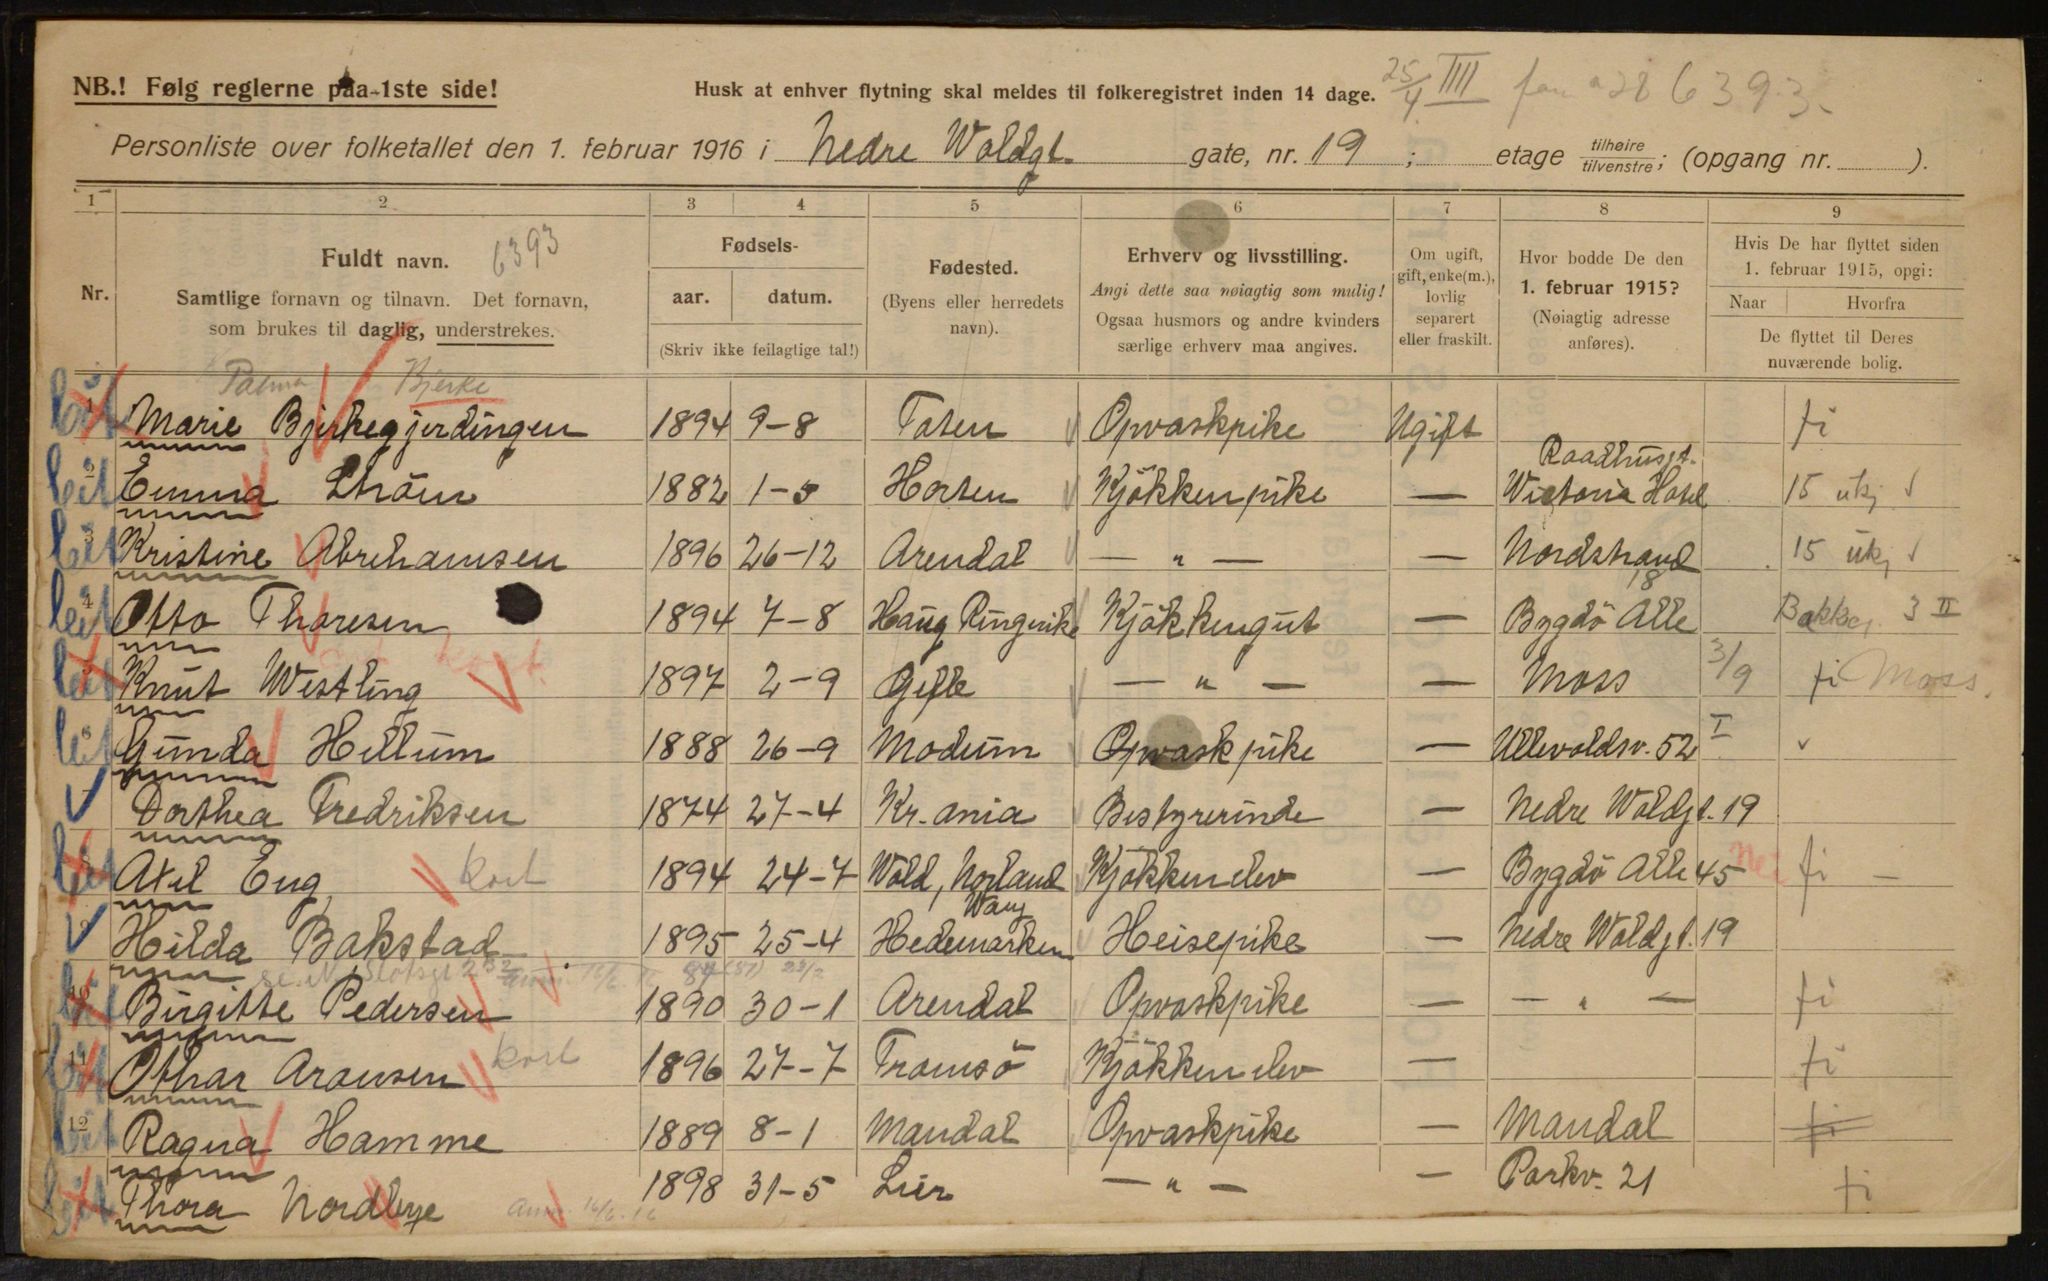 NB.! Følg reglerne paa 1ste side!
Husk at enhver flytning skal meldes til folkeregistret inden 14 dage. 25/4 IIII 28 6393.
Personliste over folketallet den 1. februar 1916 i Nedre Woldgt. gate, nr. 19 ; etage tilhøire/tilvenstre; (opgang nr. ).
1 2 3 4 5 6 7 8 9
Nr.
Fuldt navn. 6393
Samtlige fornavn og tilnavn. Det fornavn,
som brukes til daglig, understrekes.
Fødsels-
aar. datum.
(Skriv ikke feilagtige tal!)
Fødested.
(Byens eller herredets
navn).
Erhverv og livsstilling.
Angi dette saa nøiagtig som mulig!
Ogsaa husmors og andre kvinders
særlige erhverv maa angives.
Om ugift,
gift, enke(m.),
lovlig
separert
eller fraskilt.
Hvor bodde De den
1. februar 1915?
(Nøiagtig adresse
anføres).
Hvis De har flyttet siden
1. februar 1915, opgi:
Naar Hvorfra
De flyttet til Deres
nuværende bolig.
Palma Bjerke
1 Marie Bjerkegjerdingen 1894 9-8 Toten Opvaskpike Ugift fi
Raadhusgt.
2 Emma Ström 1882 1-5 Horten Kjökkenpike — Wictoria Hotel 15 ukj
3 Kristine Abrehamsen 1896 26-12 Arendal — " — — Nordstrand 15 ukj
18
4 Otto Thoresen 1894 7-8 Haug Ringerike Kjökkengut — Bygdö Alle Bakkeg. 3 II
kort.
5 Knut Westling 1897 2-9 Gefle — " — — Moss 3/9 fi Moss.
6 Gunda Hellum 1888 26-9 Modum Opvaskpike — Ullevoldsv. 52 I
7 Dorthea Fredriksen 1874 27-4 Kr.ania Bestyrerinde — Nedre Woldgt. 19
8 Axel Eng kort 1894 24-7 Wold, Norland Kjökkenelev — Bygdö Alle 45 Nei fi —
Wang
9 Hilda Bakstad 1895 25-4 Hedemarken Heisepike — Nedre Woldgt. 19
10 Birgitte Pedersen 1890 30-1 Arendal Opvaskpike — — " — fi
11 Othar Aronsen kort 1896 27-7 Tromsö Kjökkenelev — fi
12 Ragna Hamme 1889 8-1 Mandal Opvaskpike — Mandal fi
Thora Nordbye 16/6.16 1898 31-5 Lier — " — — Parkv. 21 fi